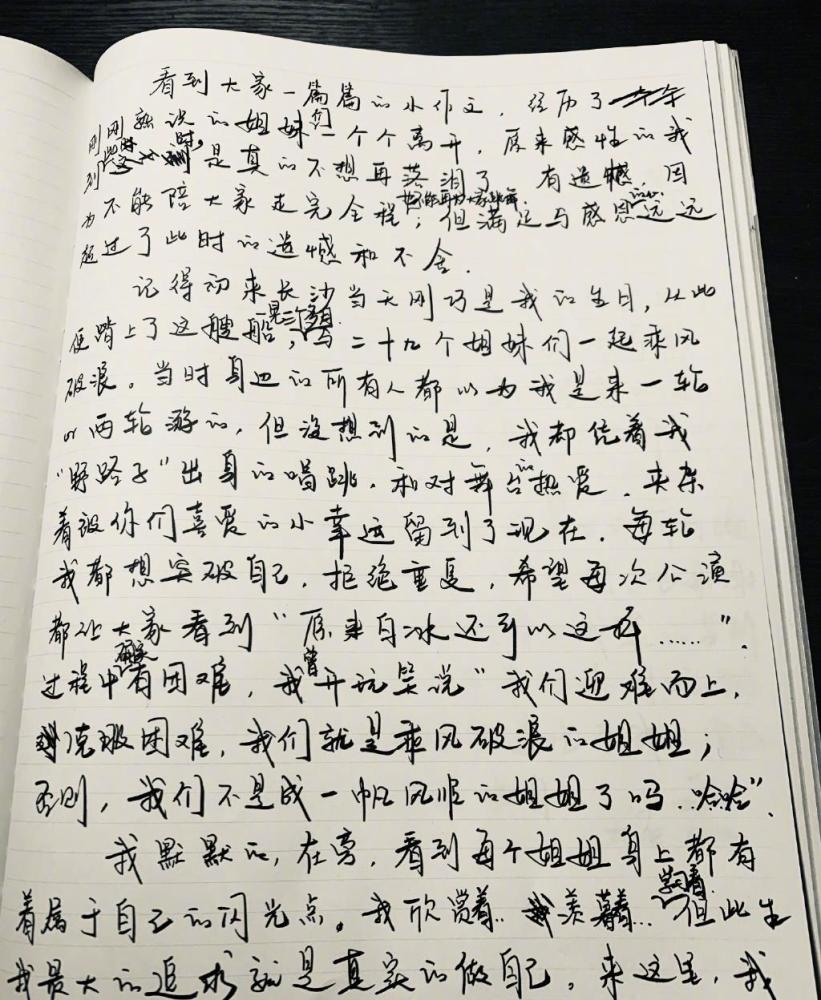 看到大家一篇篇的小作文，经历了
刚刚熟识的姐妹们一个个离开，原来感性的我
到此时，是真的不想再落泪了，有遗憾，因
为不能陪大家走完全程，但满足与感恩远远
超过了此时的遗憾和不舍．
记得初来长沙当天刚巧是我的生日，从此
便踏上了这艘船，一晃三个月，与二十九个姐妹们一起乘风
破浪。当时身边的所有人都以为我是来一轮
or两轮游的，但没想到的是，我却凭着我
“野路子”出身的唱跳，和对舞台的热爱，夹杂
着被你们喜爱的小幸运留到了现在，每轮
我都想突破自己，拒绝重复，希望每次公演
都让大家看到“原来白冰还可以这样……”．
过程中有困难，我曾开玩笑说“我们迎难而上，
克服困难，我们就是乘风破浪的姐姐；
否则，我们不是成一帆风顺的姐姐了吗．哈哈”．
我默默的，在旁，看到每个姐姐身上都有
着属于自己的闪光点。我欣赏着．羡慕着…但此生
我最大的追求就是真实的做自己。来这里，我